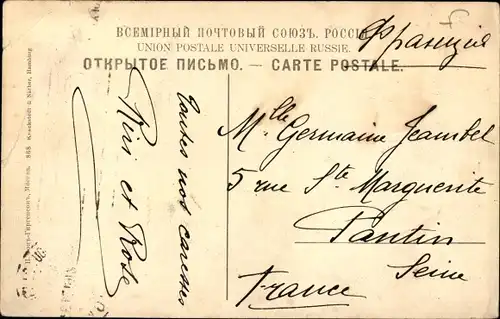 ВСЕМІРНЫЙ ПОЧТОВЫЙ СОЮЗЪ. РОССІЯ
UNION POSTALE UNIVERSELLE RUSSIE.
ОТКРЫТОЕ ПИСЬМО. — CARTE POSTALE.
Франція
Toutes nos caresses
Riri et Rose
Mlle Germaine Jeambel
5 rue Ste Marguerite
Pantin
Seine
France
868 Knackstedt & Näther, Hamburg